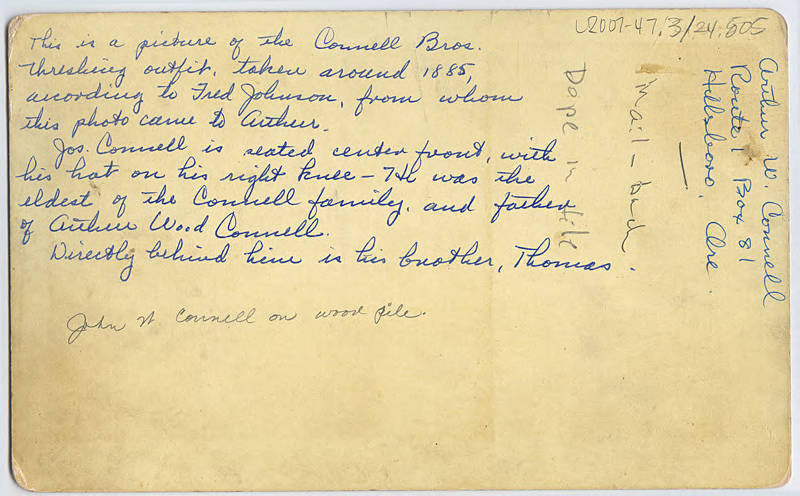 L2001-47.3/24:505
This is a picture of the Connell Bros.
threshing outfit, taken around 1885,
according to Fred Johnson, from whom
this photo came to Arthur.
Jos. Connell is seated center front, with
his hat on his right knee - He was the
eldest of the Connell family, and father
of Arthur Wood Connell.
Directly behind him is his brother, Thomas.
John W Connell on wood pile.
Dape in file
Mail - back
Arthur W. Connell
Route 1 Box 81
Hillsboro, Ore.